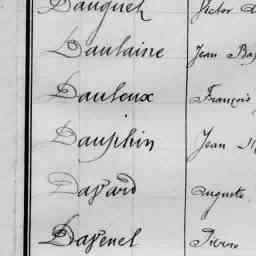 Dauquet Victor
Daulaine Jean
Dauleux François
Dauphin Jean
Davard Auguste
Davenel Pierre